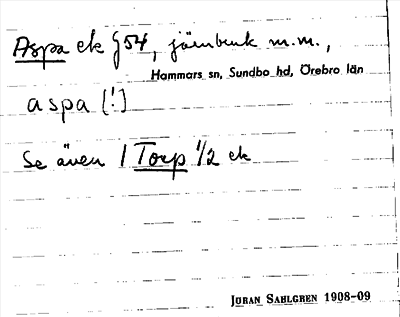 Aspa ek §54, järnbruk m.m.,
Hammars sn, Sundbo hd, Örebro län
aspa [!]
Se även 1 Torp 1/2 ek
JÖRAN SAHLGREN 1908-09